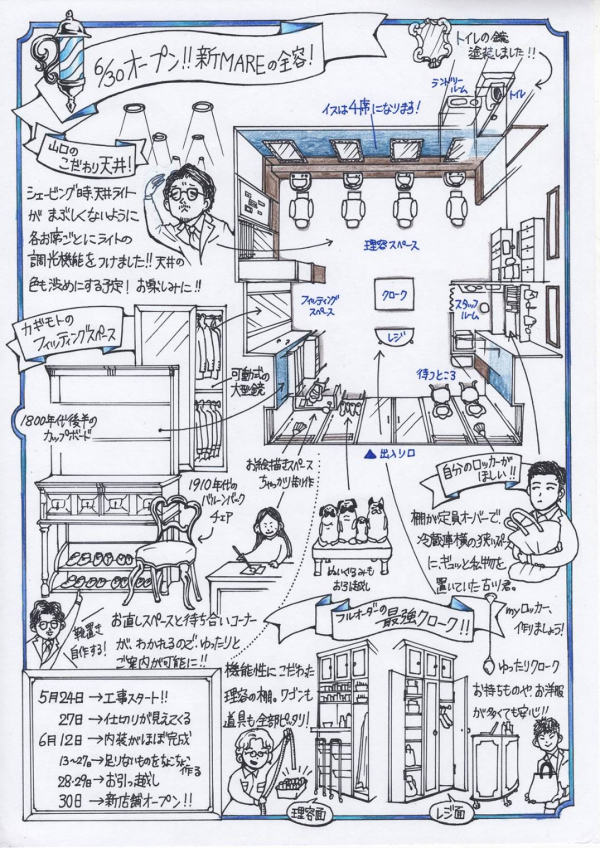 6/30オープン!!新MAREの全容!
トイレの鏡
塗装しました!!
ランドリー
ルーム
トイレ
イスは4席になります!
山口の
こだわり天井!
シェービング時、天井ライト
が まぶしくないように
各お席ごとにライトの
調光機能をつけました!!天井の
色も渋めにする予定! お楽しみに!!
理容スペース
クローク
レジ
フィッティング
スペース
スタッフ
ルーム
待つところ
▲出入り口
カギモトの
フィッティングスペース
可動式の
大型鏡
1800年代後半の
カップボード
1910年代の
バルーンバック
チェア
お絵描きスペース
ちゃっかり製作
ぬいぐるみも
お引越し
自分のロッカーが
ほしい!!
棚が定員オーバーで、
冷蔵庫横の狭いスペー
に、ギュッと私物を
置いていた古川君。
myロッカー、
作りましょう!
靴置き
自作する!
お直しスペースと待ち合いコーナー
が、わかれるので ゆったりと
ご案内が可能に!!
フルオーダーの最強クローク!!
機能性にこだわった
理容の棚。ワゴンも
道具も全部ピッタリ!
ゆったりクローク
お持ちものや お洋服
が多くても安心!!
理容面
レジ面
5月24日→工事スタート!!
27日→仕切りが見えてくる
6月12日→内装がほぼ完成
13~27日→足りないものをちょこちょこ
作る
28・29日→お引っ越し
30日→新店舗オープン!!